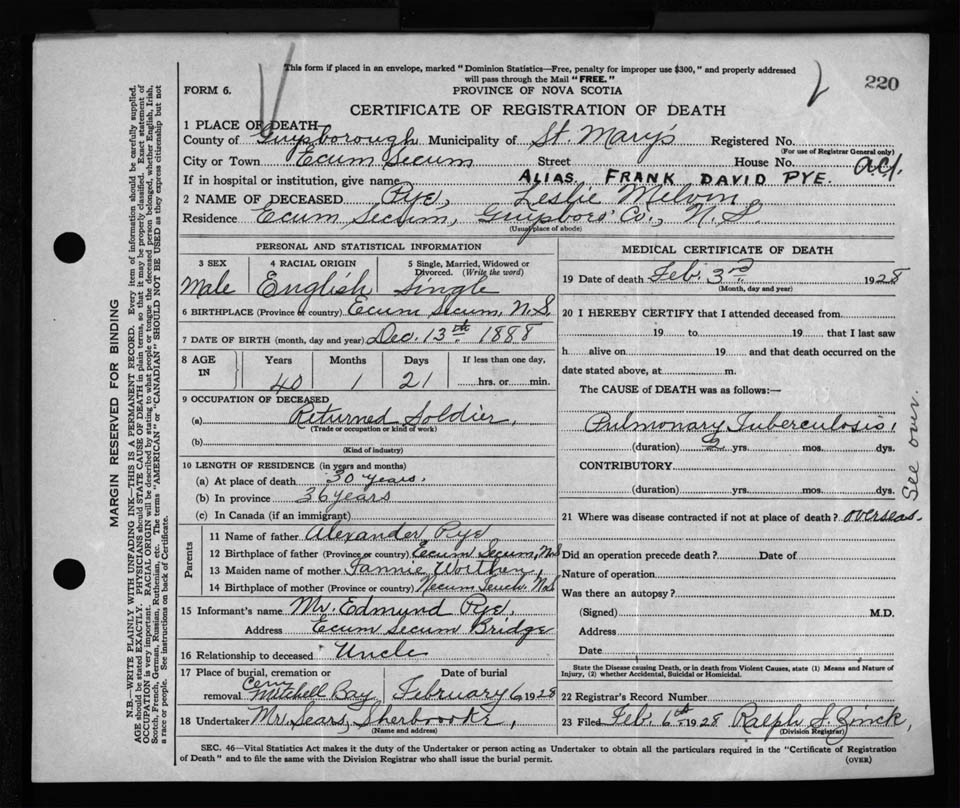 This form if placed in an envelope, marked "Dominion Statistics—Free, penalty for improper use $300," and properly addressed
will pass through the Mail "FREE."
220
FORM 6.
PROVINCE OF NOVA SCOTIA
CERTIFICATE OF REGISTRATION OF DEATH
1 PLACE OF DEATH—
County of Guysborough Municipality of St. Mary's Registered No.
(For use of Registrar General only)
City or Town Ecum Secum Street House No.
If in hospital or institution, give name ALIAS FRANK DAVID PYE.
2 NAME OF DECEASED Pye, Leslie Melvin
Residence Ecum Secum, Guysboro' Co., N.S.
(Usual place of abode)
PERSONAL AND STATISTICAL INFORMATION
3 SEX 4 RACIAL ORIGIN 5 Single, Married, Widowed or Divorced. (Write the word)
Male English Single
6 BIRTHPLACE (Province or country) Ecum Secum, N.S.
7 DATE OF BIRTH (month, day and year) Dec. 13th 1888
8 AGE IN Years Months Days If less than one day,
40 1 21 hrs. or min.
9 OCCUPATION OF DECEASED
(a) Returned Soldier,
(Trade or occupation or kind of work)
(b)
(Kind of industry)
10 LENGTH OF RESIDENCE (in years and months)
(a) At place of death 30 years.
(b) In province 36 years
(c) In Canada (if an immigrant)
Parents
11 Name of father Alexander Pye
12 Birthplace of father (Province or country) Ecum Secum, N.S
13 Maiden name of mother Fannie Worthen,
14 Birthplace of mother (Province or country) Necum Teuch N.S.
15 Informant's name Mr. Edmund Pye,
Address Ecum Secum Bridge
16 Relationship to deceased Uncle
17 Place of burial, cremation or removal Cem Mitchell Bay Date of burial February 6 1928
18 Undertaker Mr. Sears, Sherbrooke,
(Name and address)
MEDICAL CERTIFICATE OF DEATH
19 Date of death Feb. 3rd 1928
(Month, day and year)
20 I HEREBY CERTIFY that I attended deceased from
19 to 19 that I last saw
h alive on 19 and that death occurred on the
date stated above, at m.
The CAUSE of DEATH was as follows:—
Pulmonary Tuberculosis,
(duration) 2 yrs. mos. dys.
CONTRIBUTORY
(duration) yrs. mos. dys.
See over.
21 Where was disease contracted if not at place of death? overseas.
Did an operation precede death? Date of
Nature of operation
Was there an autopsy?
(Signed) M.D.
Address
Date
State the Disease causing Death, or in death from Violent Causes, state (1) Means and Nature of
Injury, (2) whether Accidental, Suicidal or Homicidal.
22 Registrar's Record Number
23 Filed Feb. 6th 1928 Ralph S. Zinck,
(Division Registrar)
SEC. 46—Vital Statistics Act makes it the duty of the Undertaker or person acting as Undertaker to obtain all the particulars required in the "Certificate of Registration
of Death" and to file the same with the Division Registrar who shall issue the burial permit.
(OVER)
MARGIN RESERVED FOR BINDING
N.B.—WRITE PLAINLY WITH UNFADING INK—THIS IS A PERMANENT RECORD. Every item of information should be carefully supplied.
AGE should be stated EXACTLY. PHYSICIANS should STATE CAUSE OF DEATH in plain terms, so that it may be properly classified. Exact statement of
OCCUPATION is very important. RACIAL ORIGIN will be described by stating to what people or tongue the deceased person belonged, whether English, Irish,
Scotch, French, German, Russian, Ruthenian, etc. The terms "AMERICAN" or "CANADIAN" SHOULD NOT BE USED as they express citizenship but not
a race or people. See instructions on back of Certificate.